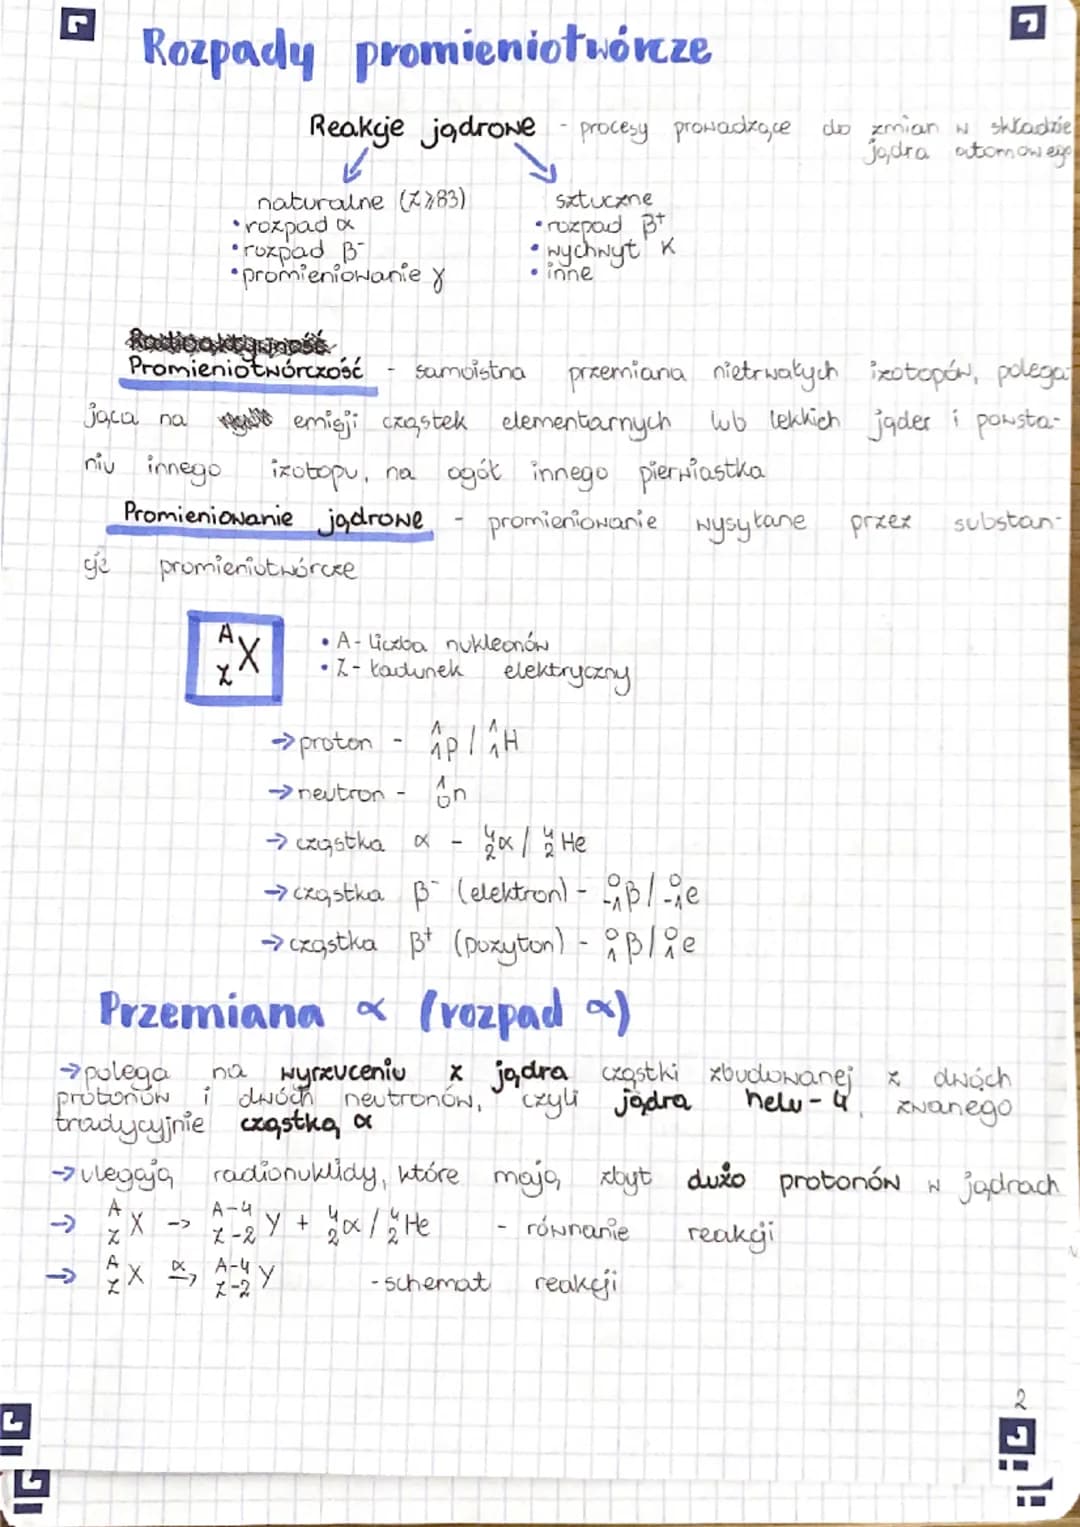 Rozpady promieniotwórcze
Reakcje jądrowe - procesy prowadzące do zmian w składzie
jądra atomowego
naturalne (Z≥83)
• rozpad α
• rozpad β⁻
• promieniowanie γ
sztuczne
• rozpad β⁺
• wychwyt K
• inne
Radioaktywność
Promieniotwórczość - samoistna przemiana nietrwałych izotopów, polega
jąca na emisji cząstek elementarnych lub lekkich jąder i powsta-
niu innego izotopu, na ogół innego pierwiastka
Promieniowanie jądrowe - promieniowanie wysyłane przez substan-
cje promieniotwórcze
ᴬ_Z X
• A - liczba nukleonów
• Z - ładunek elektryczny
→ proton - ¹₁p / ¹₁H
→ neutron - ¹₀n
→ cząstka α - ⁴₂α / ⁴₂He
→ cząstka β⁻ (elektron) - ⁰₋₁β / ⁰₋₁e
→ cząstka β⁺ (pozyton) - ⁰₁β / ⁰₁e
Przemiana α (rozpad α)
→ polega na wyrzuceniu z jądra cząstki zbudowanej z dwóch
protonów i dwóch neutronów, czyli jądra helu-4, zwanego
tradycyjnie cząstką α
→ ulegają radionuklidy, które mają zbyt dużo protonów w jądrach
→ ᴬ_Z X -> ᴬ⁻⁴_Z₋₂ Y + ⁴₂α / ⁴₂He - równanie reakcji
→ ᴬ_Z X α-> ᴬ⁻⁴_Z₋₂ Y - schemat reakcji
2